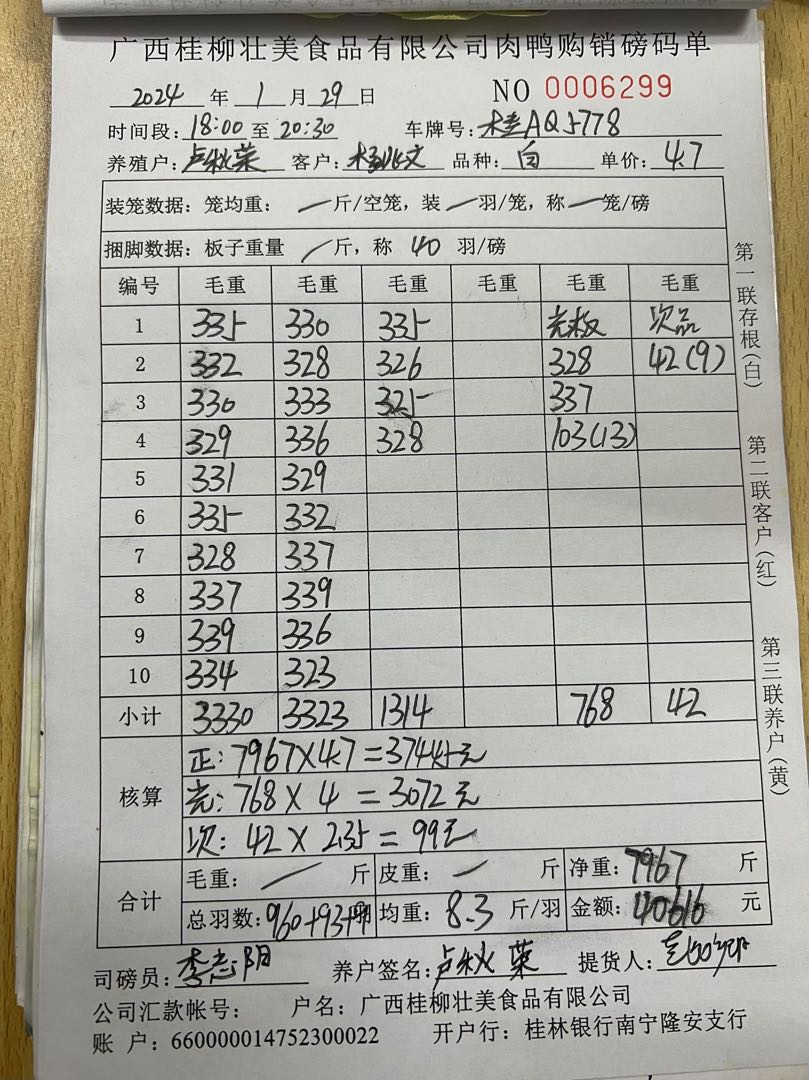 广西桂柳壮美食品有限公司肉鸭购销磅码单
2024 年 1 月 29 日 NO 0006299
时间段:18:00 至 20:30 车牌号:桂AQ5778
养殖户:卢秋荣 客户: 品种:白 单价:4.7
装笼数据:笼均重:/斤/空笼,装/羽/笼,称/笼/磅
捆脚数据:板子重量/斤,称 40 羽/磅
编号 毛重 毛重 毛重 毛重 毛重
1 335 330 335 壳板 次品
2 332 328 326 328 42(9)
3 330 333 325 337
4 329 336 328 103(13)
5 331 329
6 335 332
7 328 337
8 337 339
9 339 336
10 334 323
小计 3330 3323 1314 768 42
核算
正:7967×4.7=37445元
壳:768×4=3072元
次:42×2.35=99元
合计
毛重:/斤 皮重:/斤 净重:7967 斤
总羽数:960+93+9 均重:8.3 斤/羽 金额:40616 元
司磅员:李志阴 养户签名:卢秋荣 提货人:
公司汇款帐号: 户名:广西桂柳壮美食品有限公司
账 户:660000014752300022 开户行:桂林银行南宁隆安支行
第一联存根(白)
第二联客户(红)
第三联养户(黄)